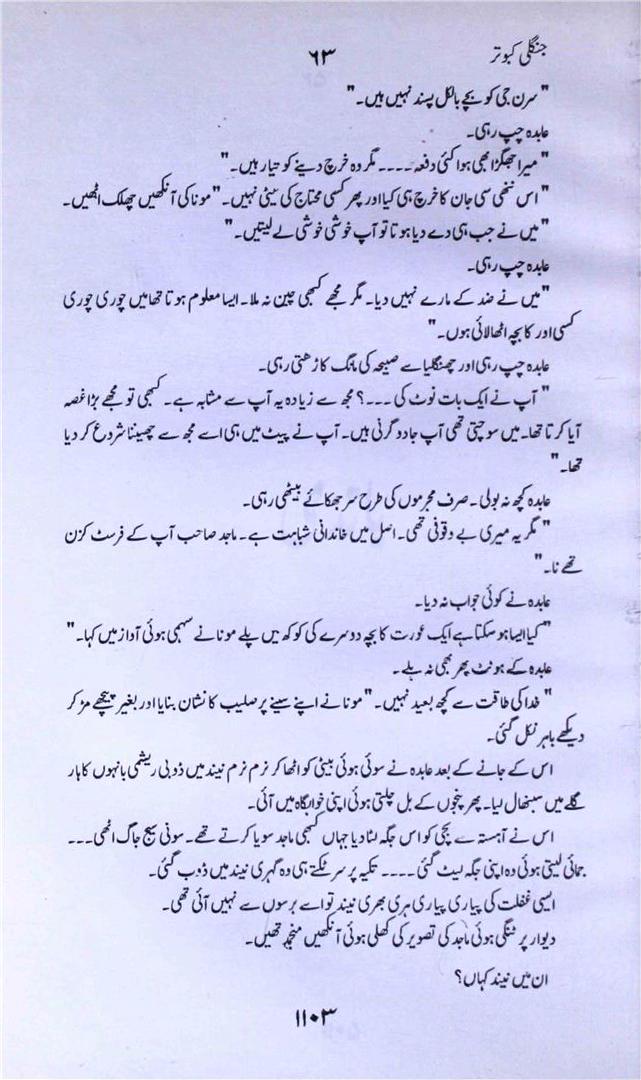 جنگلی کبوتر ۶۳
" سرن جی کو بچے بالکل پسند نہیں ہیں۔"
عابدہ چپ رہی۔
" میرا جھگڑا بھی ہوا کئی دفعہ ۔۔۔۔ مگر وہ خرچ دینے کو تیار ہیں۔"
" اس ننھی سی جان کا خرچ ہی کیا اور پھر کسی محتاج کی بیٹی نہیں۔" مونا کی آنکھیں چھلک اٹھیں۔
" میں نے جب ہی دے دیا ہوتا تو آپ خوشی خوشی لے لیتیں۔"
عابدہ چپ رہی۔
"میں نے ضد کے مارے نہیں دیا۔ مگر مجھے کبھی چین نہ ملا۔ ایسا معلوم ہوتا تھا میں چوری چوری
کسی اور کا بچہ اٹھا لائی ہوں۔"
عابدہ چپ رہی اور چھنگلیا سے صبیحہ کی مانگ کاڑھتی رہی۔
" آپ نے ایک بات نوٹ کی ۔۔۔؟ مجھ سے زیادہ یہ آپ سے مشابہ ہے۔ کبھی تو مجھے بڑا غصہ
آیا کرتا تھا۔ میں سوچتی تھی آپ جادوگرنی ہیں۔ آپ نے پیٹ میں ہی اسے مجھ سے چھیننا شروع کر دیا
تھا۔"
عابدہ کچھ نہ بولی۔ صرف مجرموں کی طرح سر جھکائے بیٹھی رہی۔
" مگر یہ میری بے وقوفی تھی۔ اصل میں خاندانی شباہت ہے۔ ماجد صاحب آپ کے فرسٹ کزن
تھے نا۔"
عابدہ نے کوئی جواب نہ دیا۔
" کیا ایسا ہو سکتا ہے ایک عورت کا بچہ دوسرے کی کوکھ میں پلے مونا نے سہمی ہوئی آواز میں کہا۔"
عابدہ کے ہونٹ پھر بھی نہ ہلے۔
" خدا کی طاقت سے کچھ بعید نہیں۔" مونا نے اپنے سینے پر صلیب کا نشان بنایا اور بغیر پیچھے مڑ کر
دیکھے باہر نکل گئی۔
اس کے جانے کے بعد عابدہ نے سوئی ہوئی بیٹی کو اٹھا کر نرم نرم نیند میں ڈوبی ریشمی بانہوں کا ہار
گلے میں سنبھال لیا۔ پھر پنجوں کے بل چلتی ہوئی اپنی خوابگاہ میں آئی۔
اس نے آہستہ سے بچی کو اس جگہ لٹا دیا جہاں کبھی ماجد سویا کرتے تھے۔ سونی سیج جاگ اٹھی۔۔۔
جمائی لیتی ہوئی وہ اپنی جگہ لیٹ گئی ۔۔۔۔ تکیہ پر سر ٹکتے ہی وہ گہری نیند میں ڈوب گئی۔
ایسی غفلت کی پیاری پیاری ہری بھری نیند تو اسے برسوں سے نہیں آئی تھی۔
دیوار پر ٹنگی ہوئی ماجد کی تصویر کی کھلی ہوئی آنکھیں منجمد تھیں۔
ان میں نیند کہاں؟
۱۱۰۳